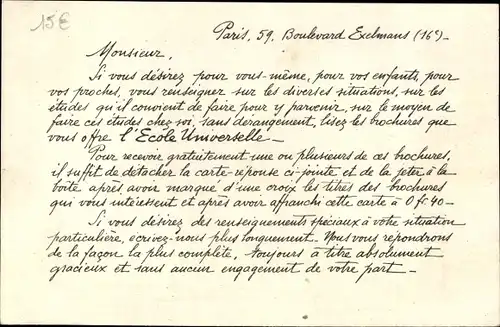 15€
Paris, 59, Boulevard Exelmans (16e)_
Monsieur,
Si vous désirez pour vous-même, pour vos enfants, pour
vos proches, vous renseigner sur les diverses situations, sur les
études qu'il convient de faire pour y parvenir, sur le moyen de
faire ces études chez soi, sans dérangement, lisez les brochures que
vous offre l'Ecole Universelle_
Pour recevoir gratuitement une ou plusieurs de ces brochures,
il suffit de détacher la carte-réponse ci-jointe et de la jeter à la
boîte après avoir marqué d'une croix les titres des brochures
qui vous intéressent et après avoir affranchi cette carte à 0 fr. 40_
Si vous désirez des renseignements spéciaux à votre situation
particulière, écrivez-nous plus longuement_ Nous vous répondrons
de la façon la plus complète, toujours à titre absolument
gracieux et sans aucun engagement de votre part_